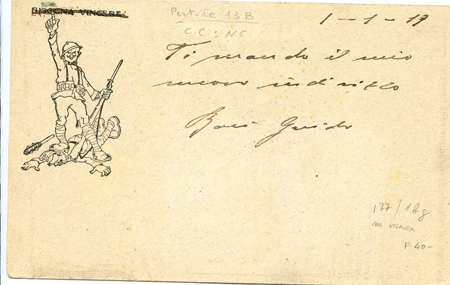 BISOGNA VINCERE
Post. le 13 B
C.C: N.C
1-1-19
Ti mando il mio
nuovo indirizzo
Baci Guido
177/1Ag
F 40-